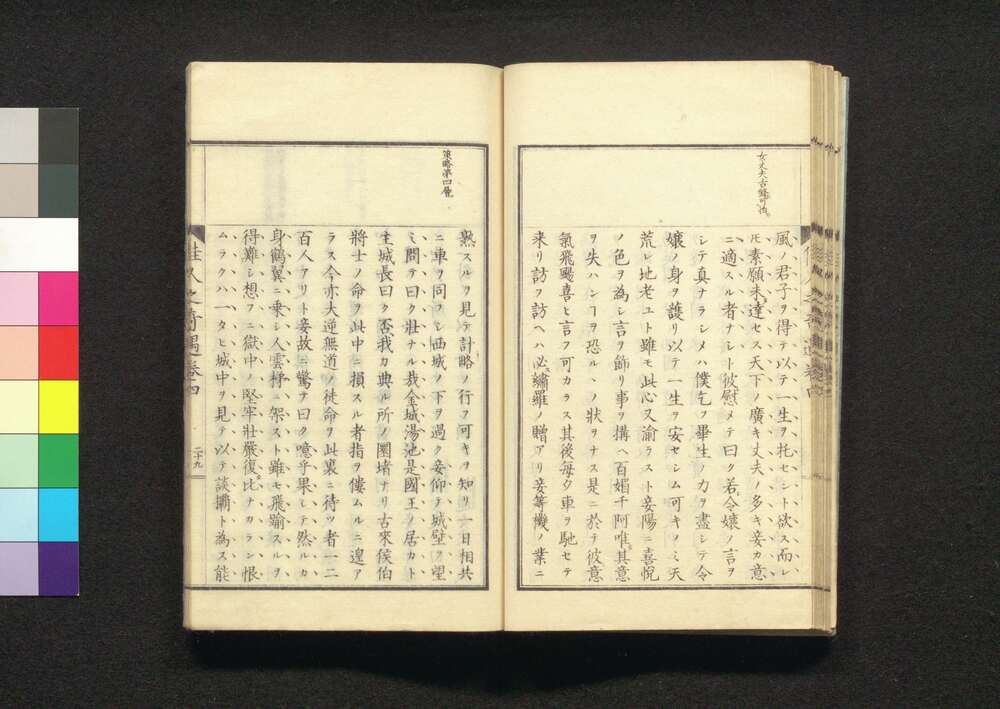 女丈夫舌鋒可怕
風ノ君子ヲ得テ以テ一生ヲ托セント欲ス而レ
𪜈素願未達セス天下ノ廣キ丈夫ノ多キ妾カ意
ニ適スル者ナシト彼慰メテ曰ク若令孃ノ言ヲ
シテ真ナラシメハ僕乞フ畢生ノ力ヲ盡シテ令
孃ノ身ヲ護リ以テ一生ヲ安セシム可キノミ天
荒レ地老ユト雖モ此心又渝ラスト妾陽ニ喜悅
ノ色ヲ為シ言ヲ飾リ事ヲ搆ヘ百媚千阿唯其意
ヲ失ハンヿヲ恐ルヽノ狀ヲナス是ニ於テ彼意
氣飛颺喜ヒ言フ可カラス其後每夕車ヲ馳セテ
来リ訪フ訪ヘハ必繡羅ノ贈アリ妾等機ノ業ニ
策略第四層
熟スルヲ見テ計略ノ行フ可キヲ知リ一日相共
ニ車ヲ同フシ西城ノ下ヲ過ク妾仰テ城壁ヲ望
ミ問テ曰ク壯ナル哉金城湯池是國王ノ居カト
主城長曰ク否我カ典ル所ノ圜堵ナリ古來侯伯
將士ノ命ヲ此中ニ損スル者指ヲ僂ムルニ遑ア
ラス今亦大逆無道ノ徒命ヲ此裏ニ待ツ者一二
百人アリト妾故ニ驚テ曰ク噫乎果シテ然ルカ
身鶴翼ニ乘シ人雲梯ニ架スト雖モ飛踰スルヲ
得難シ想フニ獄中ノ堅牢壯嚴復比ナカラン恨
ムラクハ一タヒ城中ヲ見テ以テ談柄ト為ス能
佳人之奇遇卷四
二十九